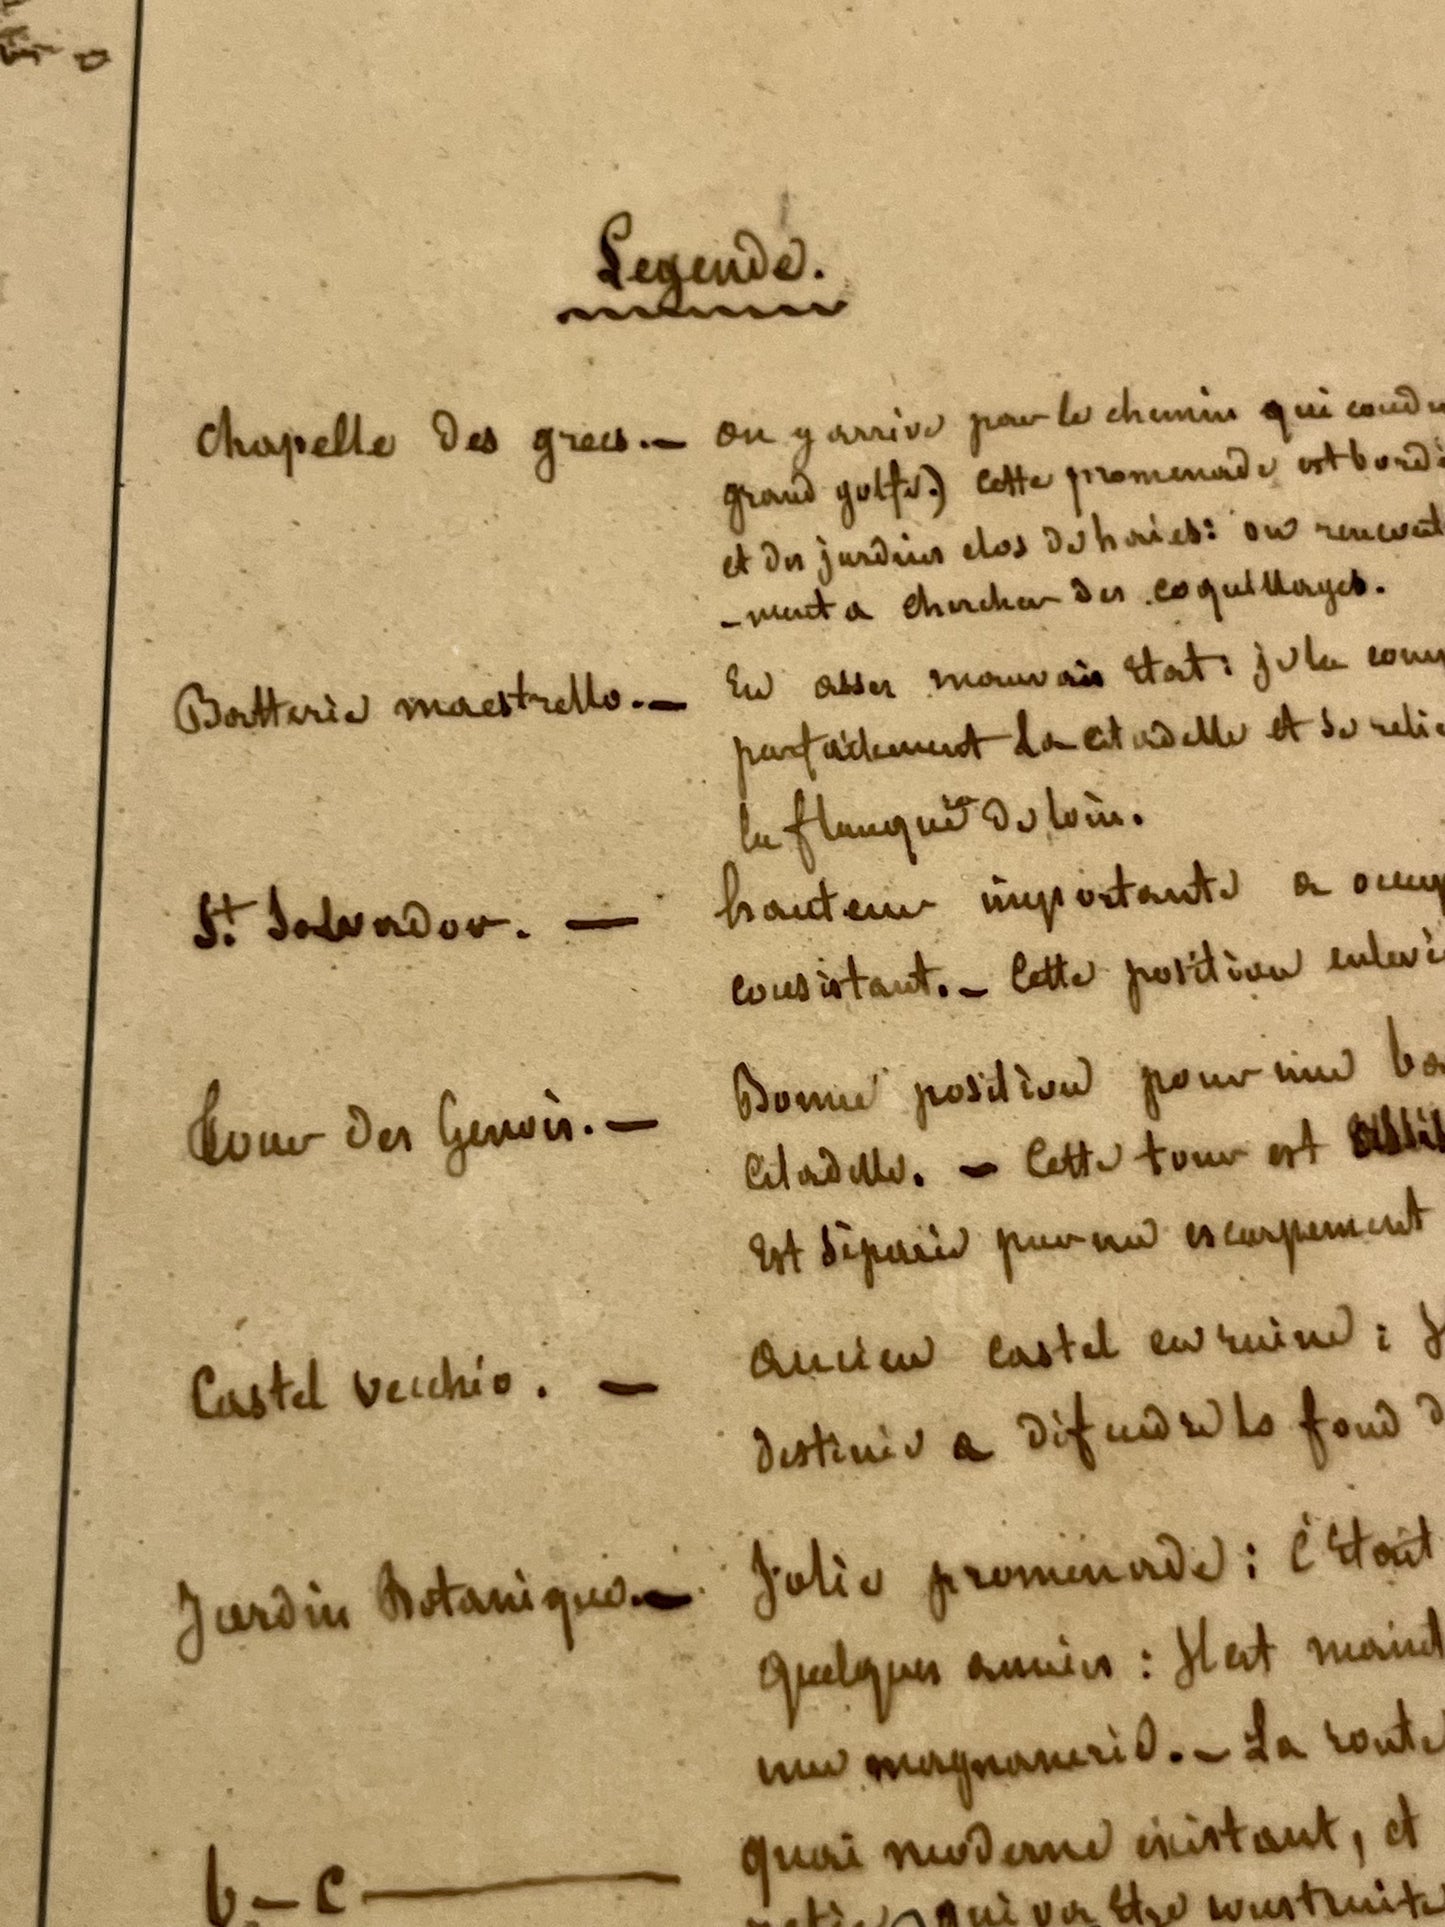 Legende.
Chapelle des grecs. — on y arrive par le chemin qui condu
grand golfe.) Cette promenade est bordé
et des jardins clos de haies: on rencont
-ment a chercher des coquillages.
Batterie maestrello. — En assez mauvais état: je la
parfaitement la citadelle et se relie
la flanque de loin.
St. Salvador. — hauteur importante a occup
consistant. — Cette position enlevé
Tour des Genois. — Bonne position pour une ba
Citadelle. — Cette tour est
Est séparée par un escarpement
Castel vecchio. — ancien castel en ruine:
destinée a défendre le fond d
Jardin Botanique. — Jolie promenade: C'était
quelques années: Il est maint
une magnanerie. — La route
b — c — quai moderne existant, et
qui va être construite